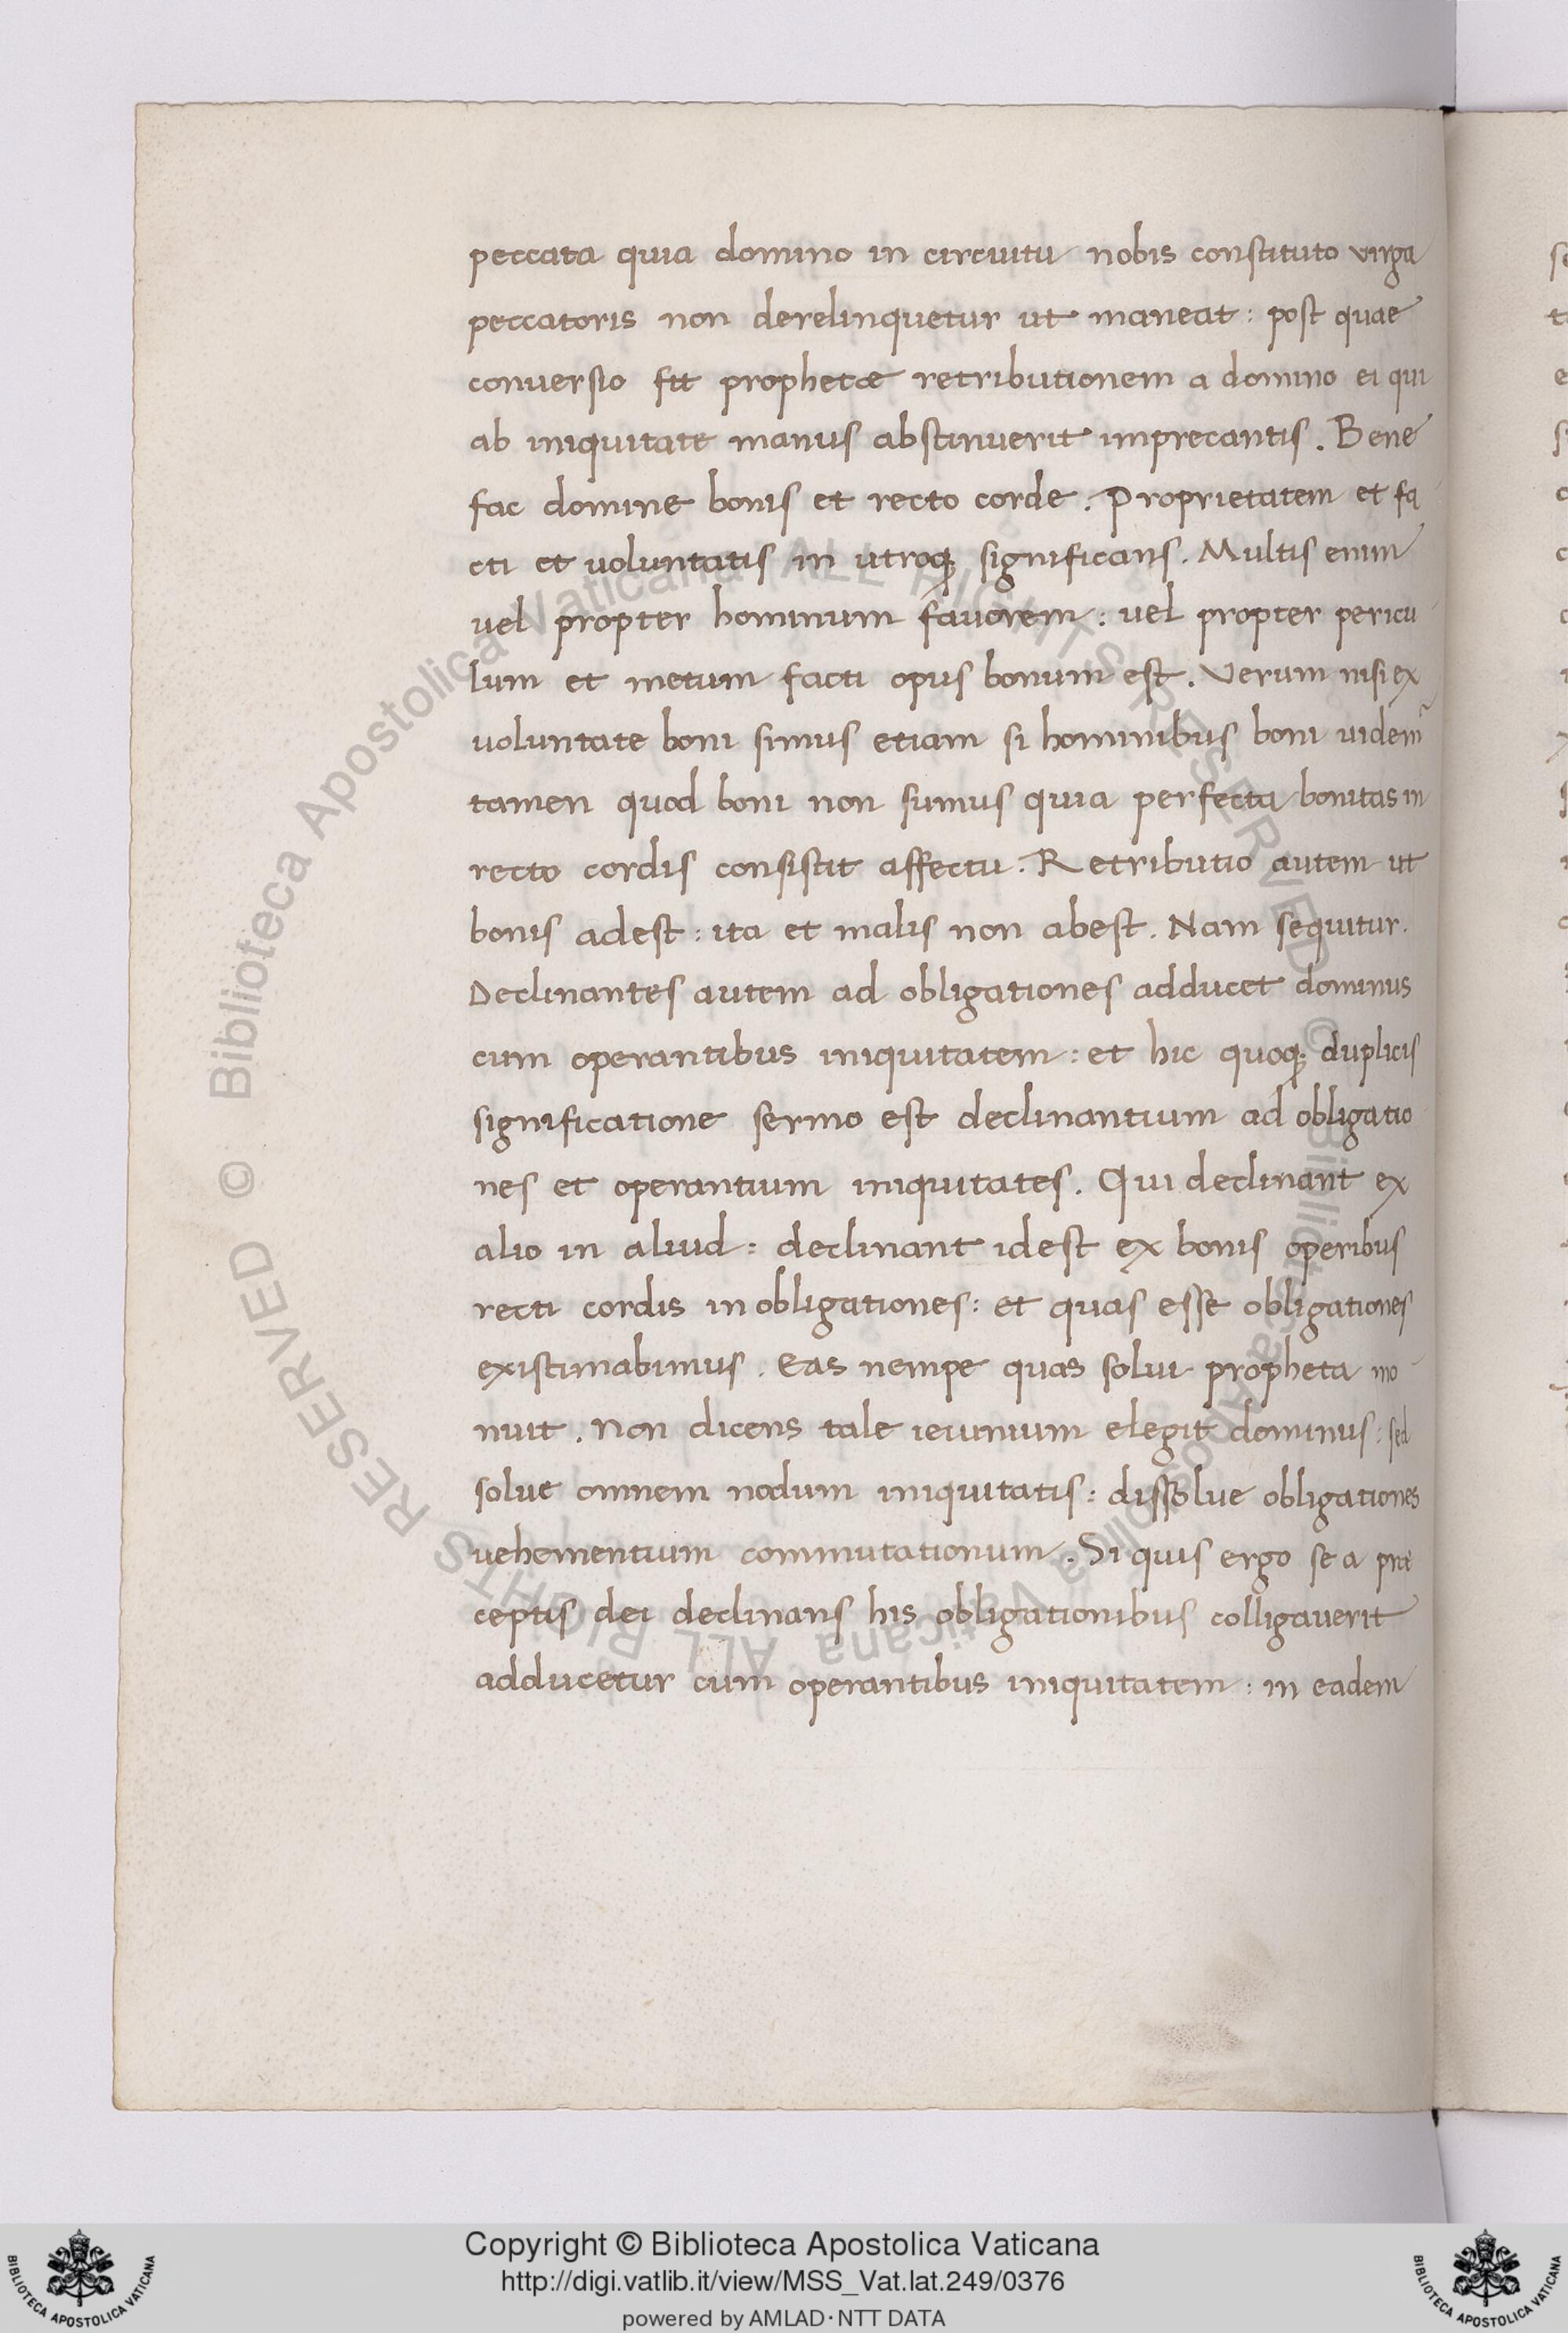 peccata quia domino in circuitu nobis constituto virga
peccatoris non derelinquetur ut maneat : post quae
conuersio fit prophetæ retributionem a domino ei qui
ab iniquitate manus abstinuerit imprecantis . Bene
fac domine bonis et recto corde . Proprietatem et fa
cti et uoluntatis in utroq; significans . Multis enim
uel propter hominum fauorem : uel propter pericu
lum et metum facti opus bonum est . Verum nisi ex
uoluntate boni simus etiam si hominibus boni uidem̃
tamen quod boni non sumus quia perfecta bonitas in
recto cordis consistit affectu . Retributio autem ut
bonis adest : ita et malis non abest . Nam sequitur .
Declinantes autem ad obligationes adducet dominus
cum operantibus iniquitatem : et hic quoq; duplicis
significatione sermo est declinantium ad obligatio
nes et operantium iniquitates . Qui declinant ex
alio in aliud : declinant idest ex bonis operibus
recti cordis in obligationes : et quas esse obligationes
existimabimus . Eas nempe quas solui propheta mo
nuit . Non dicens tale ieiunium elegit dominus : sed
solue omnem nodum iniquitatis : dissolue obligationes
uehementium commutationum . Si quis ergo se a præ
ceptis dei declinans his obligationibus colligauerit
adducetur cum operantibus iniquitatem : in eadem
© Biblioteca Apostolica Vaticana ALL RIGHTS RESERVED © Biblioteca Apostolica Vaticana ALL RIGHTS RESERVED
Copyright © Biblioteca Apostolica Vaticana
http://digi.vatlib.it/view/MSS_Vat.lat.249/0376
powered by AMLAD·NTT DATA
BIBLIOTECA APOSTOLICA VATICANA
BIBLIOTECA APOSTOLICA VATICANA